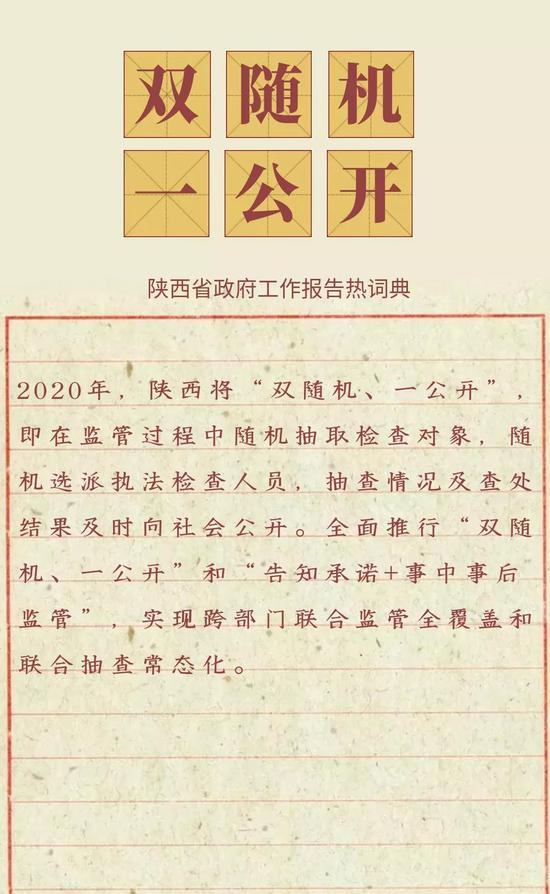 双随机
一公开
陕西省政府工作报告热词典
2020年，陕西将“双随机、一公开”，
即在监管过程中随机抽取检查对象，随
机选派执法检查人员，抽查情况及查处
结果及时向社会公开。全面推行“双随
机、一公开”和“告知承诺+事中事后
监管”，实现跨部门联合监管全覆盖和
联合抽查常态化。